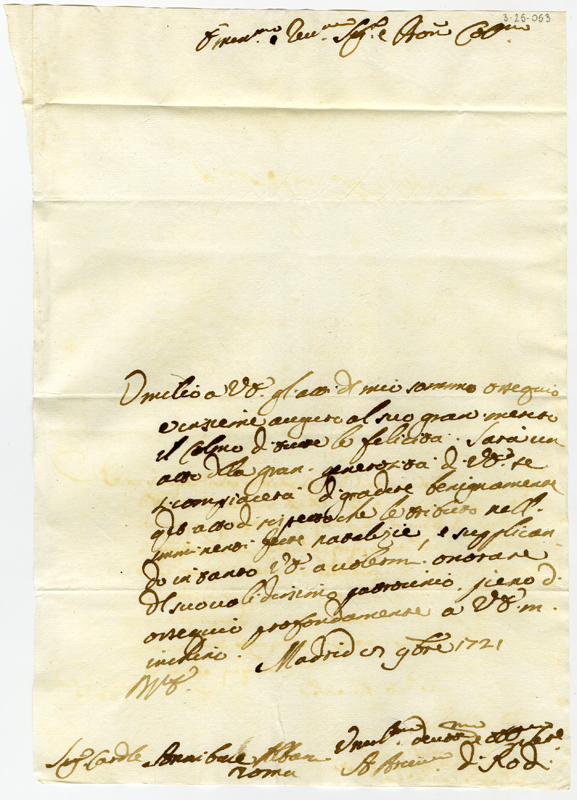 3-25-053
Emin.mo e Reu.mo Sig.r e Pron Col.mo
Umilio a V.E. gl'atti di mio sommo ossequio
e insieme auguro al suo gran merito
il Colmo di tutte le felicità. Sarà un
atto della gran generosità di V.E. se
si compiacerà di gradire benignamente
q.to atto di rispetto che le tributo nell'
imminenti feste natalizie, e supplican
do intanto V.E. a volermi onorare
del suo validissimo patrocinio pieno di
ossequio profondamente a V.E. m.
inchino. Madrid 9bre 1721
Sig.r Cardle Annibale Albani
Roma
Umil.mo deuot.mo
A. Arciu. di Rodi